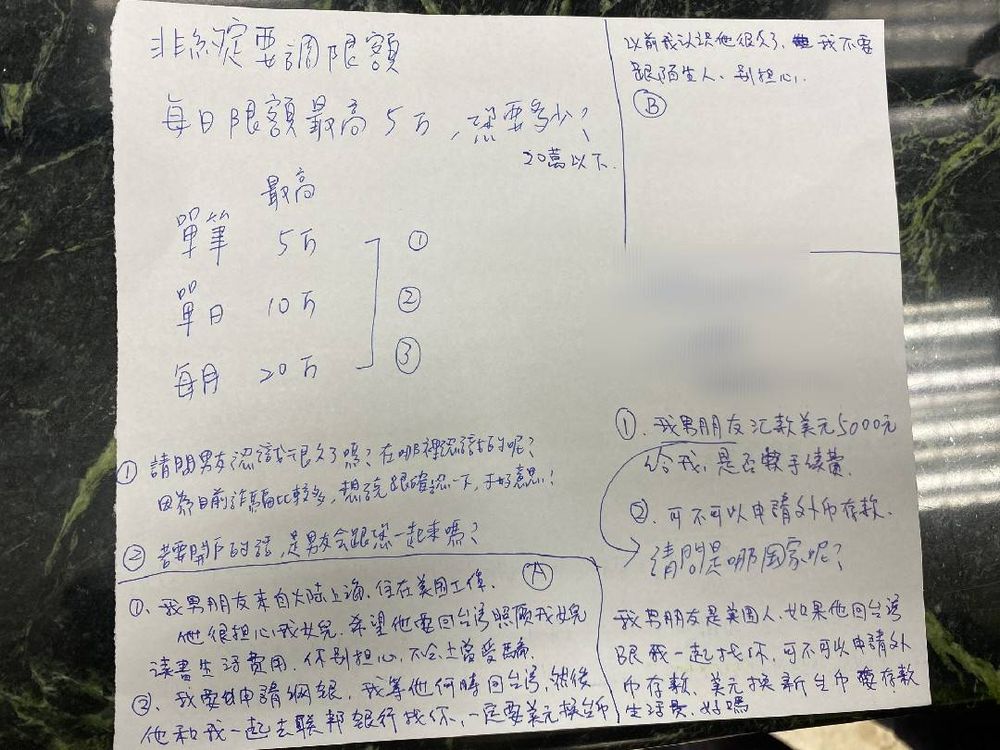 非約定要調限額
每日限額最高5万,您要多少?
20萬以下.
最高
單筆 5万 ①
單日 10万 ②
每月 20万 ③
以前我認识他很久了,我不要
跟陌生人、别担心.
Ⓑ
①.我男朋友汇款美元5000元
给我,是否要手续費.
②.可不可以申請外币存款.
請問是哪国家呢?
我男朋友是美国人,如果他回台湾
跟我一起找你,可不可以申請外
币存款、美元换新台币存款
生活费,好嗎
① 請問男友認識很久了嗎?在哪裡認識的呢?
因為目前詐騙比較多,想說跟您確認一下,不好意思!
② 若要開戶的話,是男友會跟您一起來嗎?
Ⓐ
①、我男朋友来自大陸上海、住在美国工作.
他很担心我女兒.希望他要回台湾照顾我女兒
读書生活費用.你别担心,不会上當受骗.
②、我要申請網銀,我等他何時回台湾,然後
他和我一起去聯邦銀行找你,一定要美元换台币